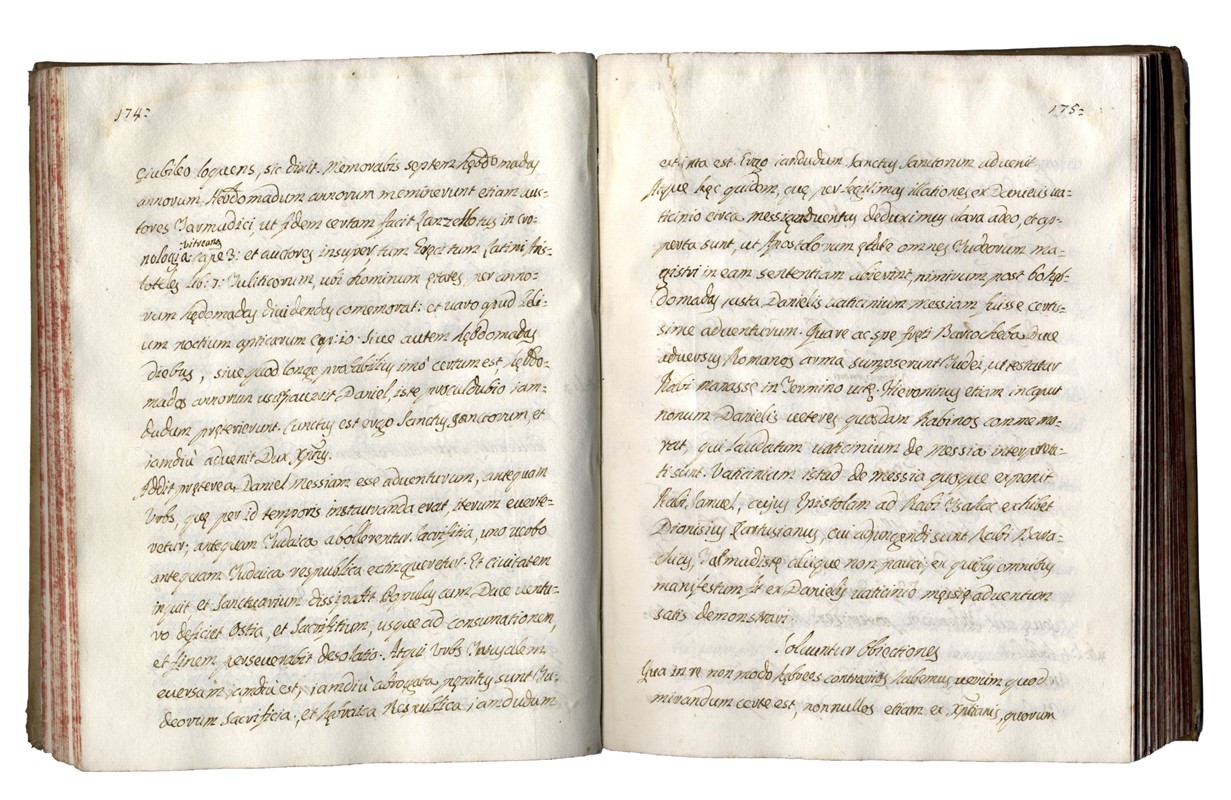 174:
Çiubileo loquens, sic dixit. Memorabis septem hębdomadas
annorum. Hębdomadum annorum meminerunt etiam auc-
tores Tarmudici, ut fidem certam facit Canzellotus in cro-
vitreana
nologia: cap. 3: et auctores insuper tum Gręci tum Latini Aris-
toteles lib: 7: Politicorum, ubi hominum ętates, per anno-
rum hędomadas dividendas comemorat: et varo apud
um noctium apticarum cap: 10. Sive autem hębdomadas
diebus, sive quod longe probabilius imò certum est, hębdo-
madas annorum Daniel, iste proculdubio iam-
dudum pręterierunt. Cunctus est ergo Sanctus Sanctorum, et
iamdiù advenit Dux Xpſtus.
Addit pręterea, Daniel Messiam esse adventurum, antequam
Urbs, quę per id temporis instauranda erat, iterum everte-
retur; antequam Iudaica abollerentur sacrifitia, uno verbo
antequam Iudaica respublica extingueretur. Et civitatem
inquit et Sanctuarium dissipabit Populus cum Duce ventu-
ro deficiet Ostia, et Sacrifitium, usque ad consumationem,
et finem perseverabit desolatio. Atqui Urbs Ierusalem
eversa iamdiù est, iamdiù abrogata pęnitus sunt Iu-
deorum Sacrificia, et hebraica Respublica iamdudum
175:
extinta est. Ergo iamdudum Sanctus Sanctorum advenit.
Atque hęc quidem, quę per legitimas illationes ex Danielis va-
ticinio circa messię adventus deduximus clara adeo, et ap-
perta sunt, ut Apostolorum ętate omnes Iudeorum ma-
gistri in eam sententiam abierint, nimirum post 60 hęb-
domadas iusta Danielis vaticinium messiam fuisse certis-
sime adventurum. Quare ac spe freti Barcocheba duce
adversus Romanos arma sumpserunt Iudei, ut testatur
Rabi manasse in Termino vitę. Hieronimus etiam in caput
nonum Danielis veteres quosdam Rabinos comme mo-
rat, qui laudatum vaticinium de messia interpreta-
ti sunt. Vaticinium istud de messia quoque exponit
Rabi Samuel, cujus Epistolam ad Rabi Ysahac exhibet
Dionisius Cartusianus, cui adiungendi sunt Rabi Bara-
chias, Talmudistę aliique non pauci; ex quibus omnibus
manifestum fit ex Danielis vaticinio messię adventum
satis demonstrari.
Solvuntur Obiectiones
Qua in re non modo hebreos contrarios habemus, verùm quod
mirandum certe est, nonnullos etiam ex Xpſtianis, quorum